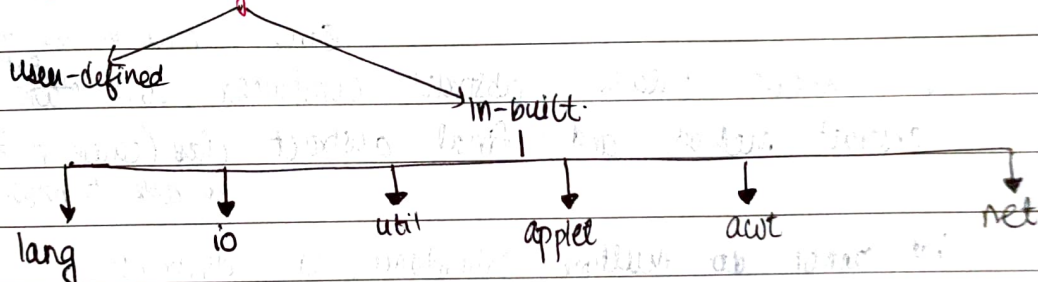 user-defined
in-built.
lang io util applet awt net